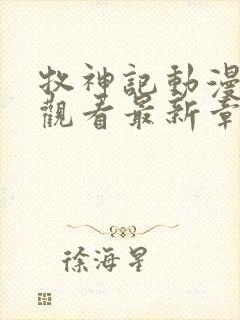 牧神記動漫
觀看最新章
徐海星